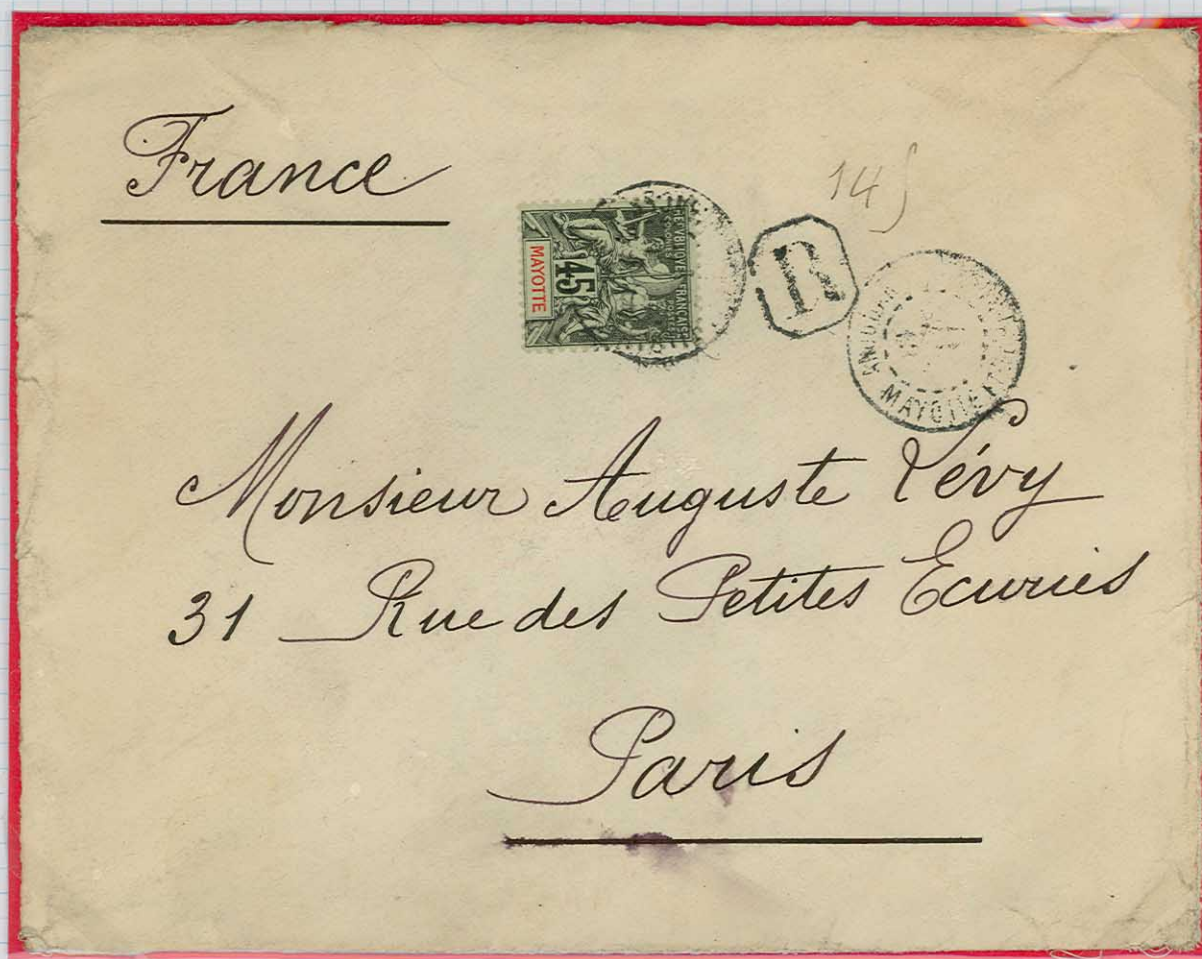 France
145
REPUBLIQUE FRANÇAISE
COLONIES
POSTES
45
MAYOTTE
R
MAYOTTE
Monsieur Auguste Lévy
31 Rue des Petites Ecuries
Paris